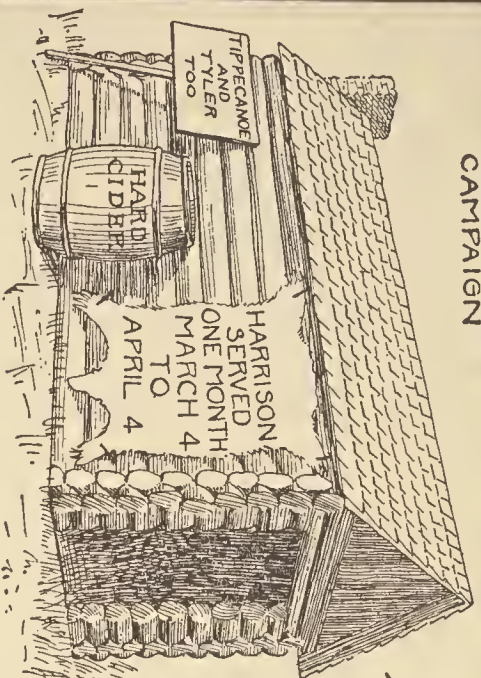 CAMPAIGN
TIPPECANOE
AND
TYLER
TOO
HARD
CIDER
HARRISON
SERVED
ONE MONTH
MARCH 4
TO
APRIL 4